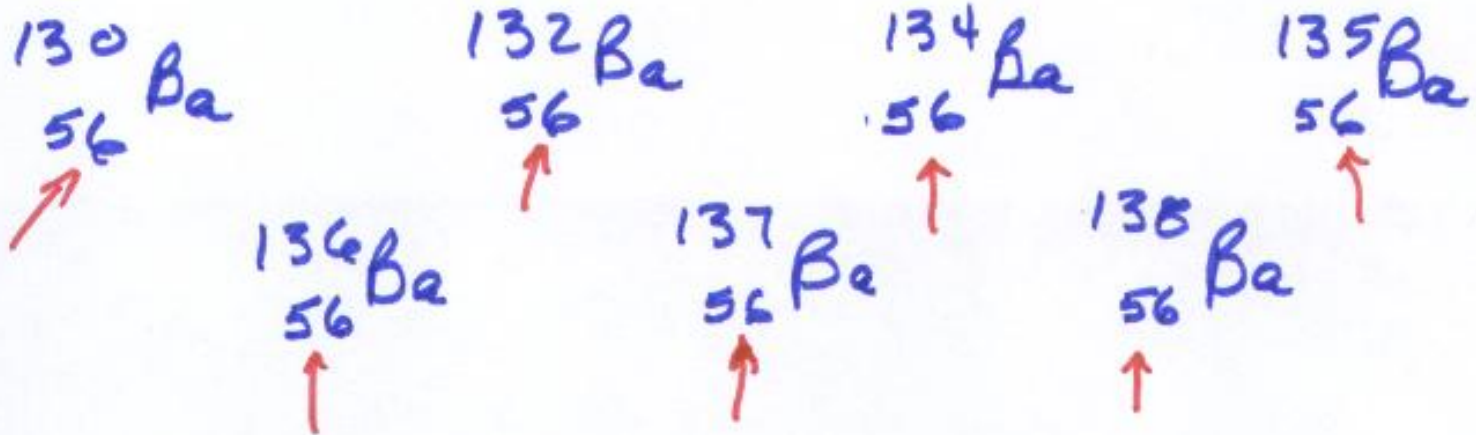 130 56 Ba 132 56 Ba 134 56 Ba 135 56 Ba
136 56 Ba 137 56 Ba 138 56 Ba